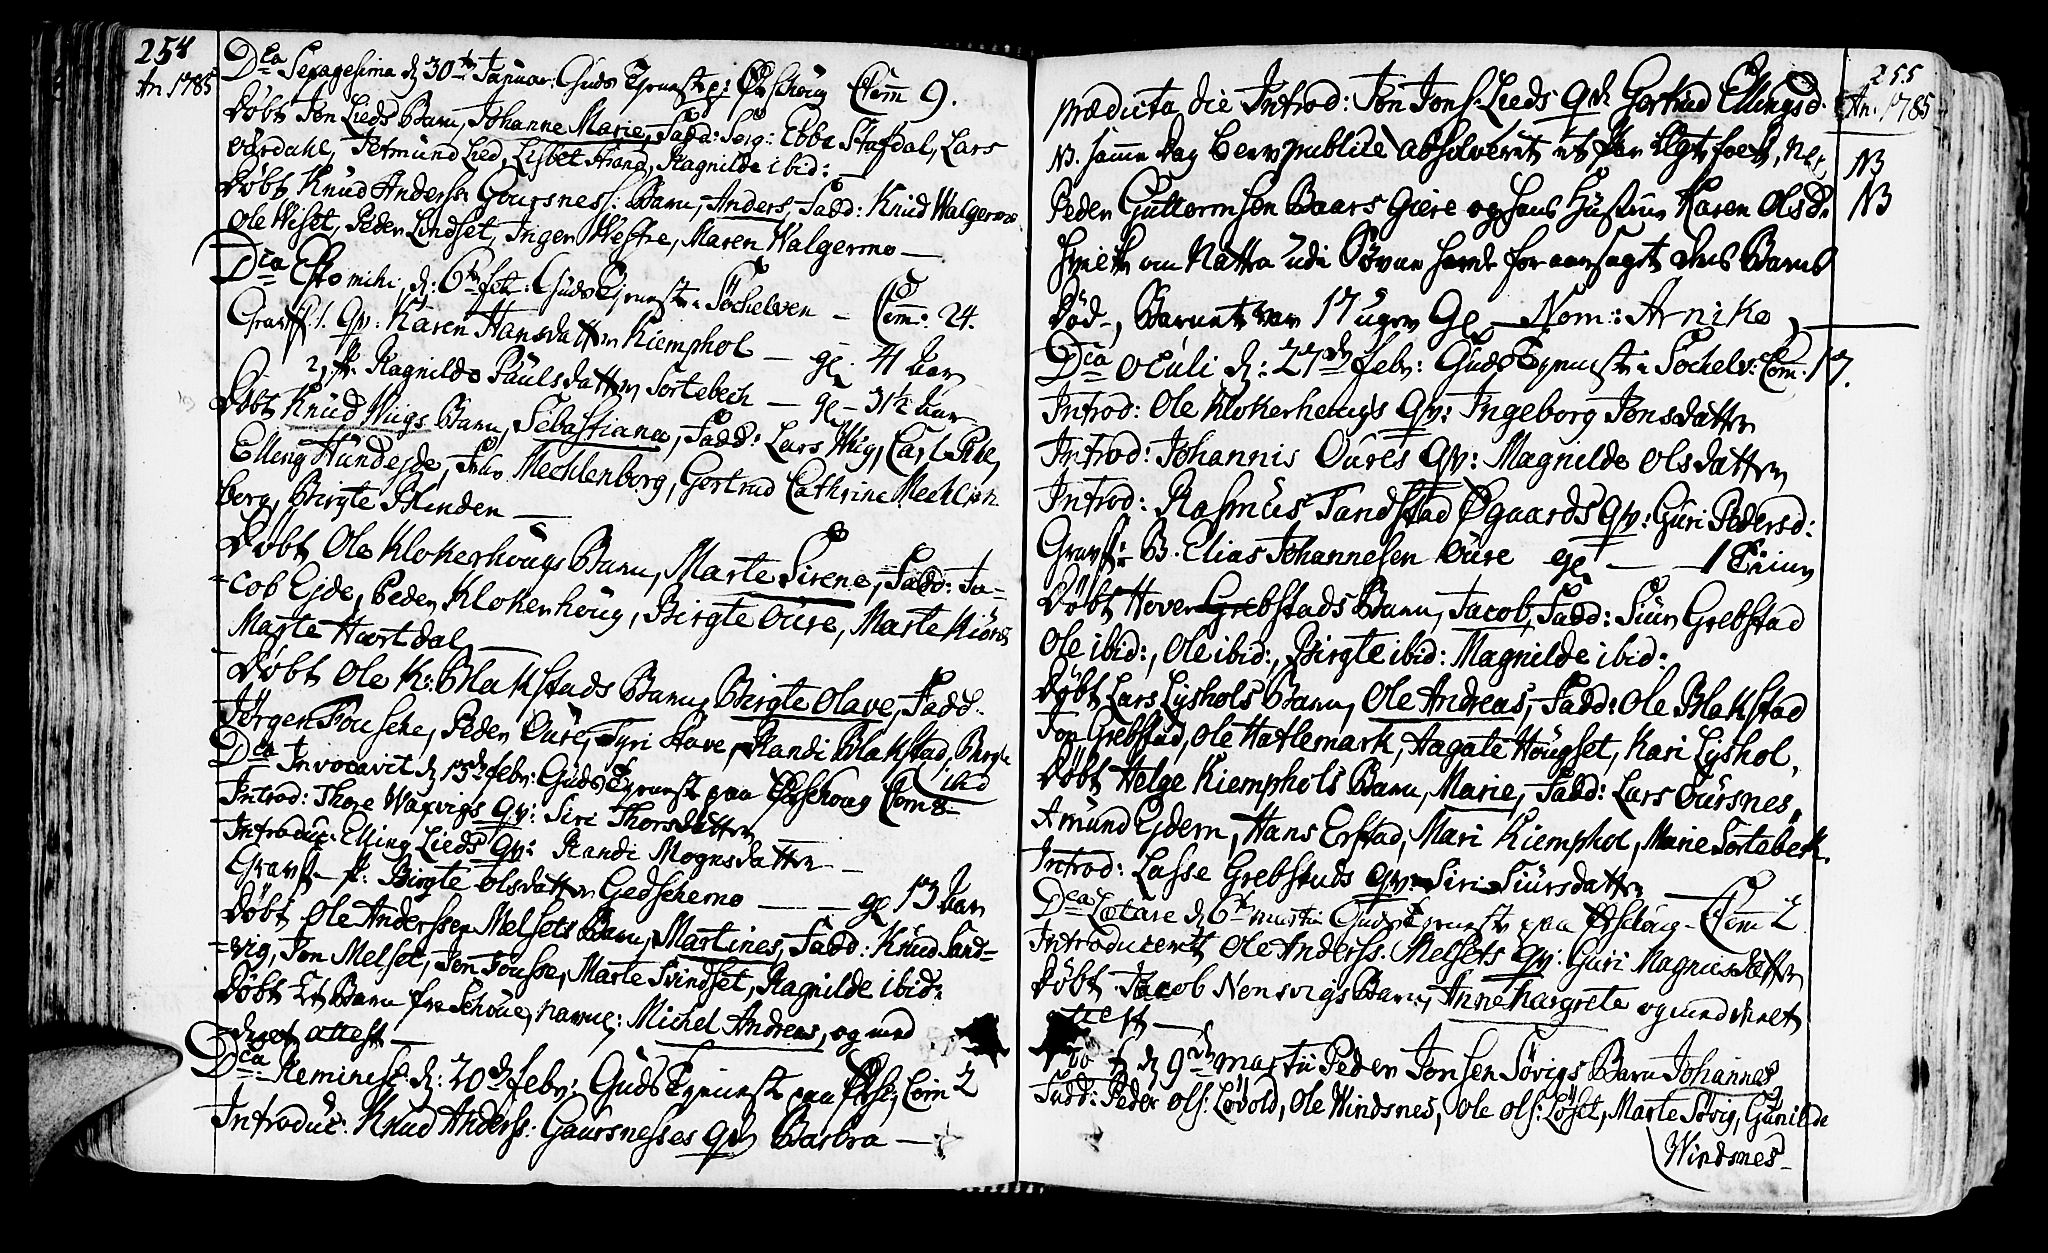 254
An 1785
Dca Sexagesima d 30te Januar: Guds Tjeneste p: Ørschoug Com̅ 9.
Døbt Jon Lieds Barn, Johanne Marie, Fadd: Serg: Ebbe Stafdal, Lars
Wardahl, Petmund Lied, Lisbet Strand, Ragnilde ibid: —
Døbt Knud Anderss: Goursness: Barn, Anders, Fadd: Knud Walgermo
Ole Wiset, Peder Lindset, Inger Westre, Maren Walgermo —
Dca Esto mihi, d: 6te febr: Guds Tjeneste i Söchelven — Com̅: 24.
Gravf: 1. Qv: Karen Hansdatter Kiemphol — gl 41 aar
2, fr. Ragnilde Paulsdatter Sortebech — gl — 31½ aar
Døbt Knud Wiigs Barn, Sebastiana, Fadd: Lars Wiig, Carl Ribe,
Elling Hundejde, Frue Mechlenborg, Gertrud Cathrine Mechlen
borg, Birgte Strinden —
Døbt Ole Klokerhougs Barn, Marte Sirene, Fadd: Ja=
=cob Ejde, Peder Klokerhoug, Birgte Oure, Marte Kiörs
Marte Hiortdal, —
Døbt Ole K: Blakstads Barn, Birgte Olave, Fadd.
Jörgen Fouske, Peder Oure, Syri Stave, Randi Blakstad, Birgte
ibid
Dca Invocavit d 13de febr: Guds Tjeneste paa Ørschoug Com 8
Introd: Thore Waxvigs Qv: Siri Thorsdatter
Introduc: Elling Lieds Qv: Randi Mognsdatter —
Gravf: fr: Birgte Olsdatter Gedschemo — — gl 13 aar
Døbt Ole Anderssen Melsets Barn, Martines, Fadd: Knud Sand=
=vig, Jon Melset, Jon Fousse, Marte Svindset, Ragnilde ibid:
Døbt Et Barn fra Schoue, navnl: Michel Andreas, og med
daet attest —
Dca Reminisc: d: 20de febr: Guds Tjeneste paa Ørsk: Com̅ 2
Introduc: Knud Anderss: Gaursnesses Qv Barbra —
255
An: 1785
prædicta die Introd: Jon Jons: Lieds Qv Gertrud Ellingsd.
NB. samme dag blev publice absolveret et par Egtefolk, Nbr
NB
Peder Guttormsen Baars Giere og hans Hustru Karen Olsd:
NB
hvilke om Natten udi Søvne havde foraarsaget deres Barns
Död —, Barnet var 17 uger gl — Nom: Arniko,
Dca Oculi d: 27de febr: Guds Tjeneste i Söchelv: Com: 17.
Introd: Ole Klokerhougs Qv: Ingeborg Jonsdatter
Introd: Johannis Oures Qv: Magnilde Olsdatter
Introd: Rasmus Tandstad Øgaards Qv: Guri Pedersd:
Gravf: B. Elias Johannesen Oure gl — — 1 Time
Døbt Hover Grebstads Barn, Jacob, Fadd: Siur Grebstad
Ole ibid:, Ole ibid:, Birgte ibid: Magnilde ibid:
Døbt Lars Lyshols Barn, Ole Andreas, Fadd: Ole Blakstad
Jon Grebstad, Ole Hatlemark, Aagate Hougset, Kari Lyshol.
Døbt Helge Kiemphols Barn, Marie, Fadd: Lars Oursnes,
Amund Ejdern, Hans Erstad, Mari Kiemphol, Marie Sortebech.
Introd: Lasse Grebstads Qv: Siri Siursdatter —
Dca Lætare d 6te martii Guds Tjeneste paa Ørschoug — Com̅ 2
Introduceret Ole Anderss. Melsets Qv: Guri Magnusdatter
Døbt Jacob Nonsvigs Barn, Anne Margrete og med daet
attest —
Døbt d 9de martii Peder Jonsen Sövigs Barn Johannes
Fadd: Peder Ols: Lövold, Ole Windsnes, Ole Ols: Löset, Marte Sövig, Gunilde
Windsnes —